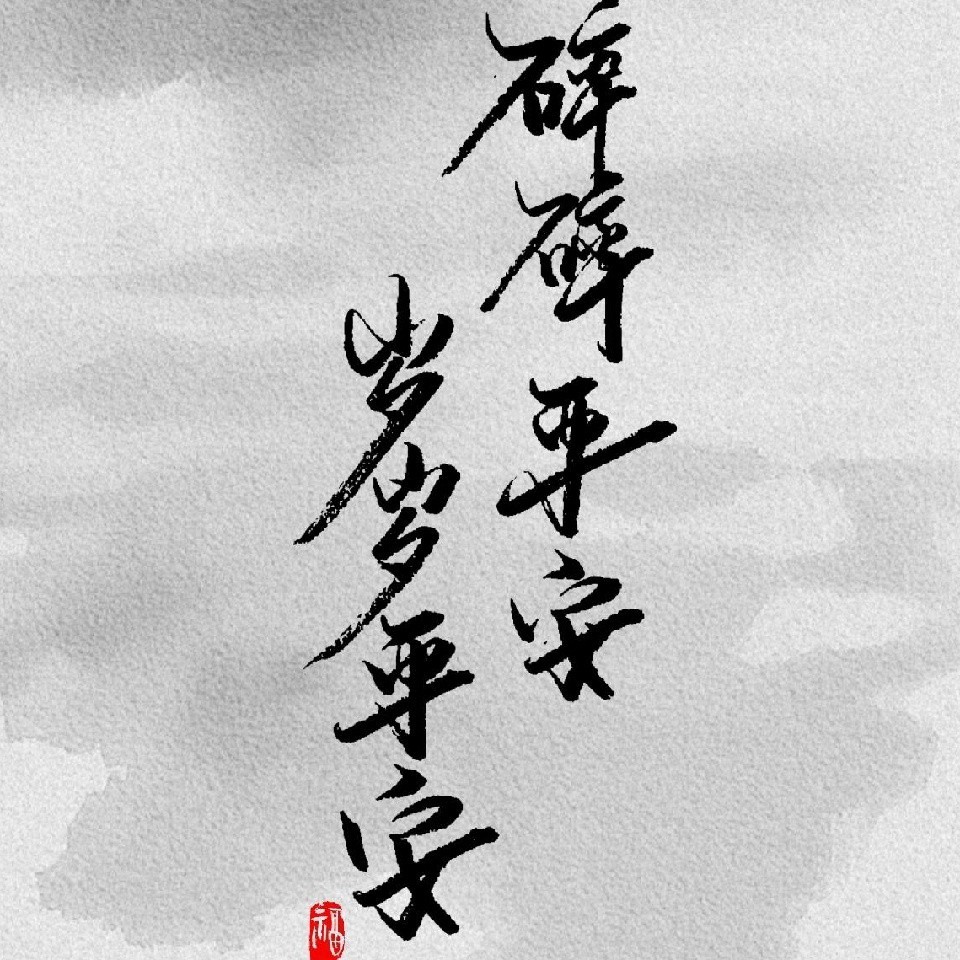 碎碎平安
岁岁平安
福